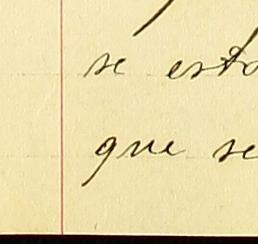 se esta
que se